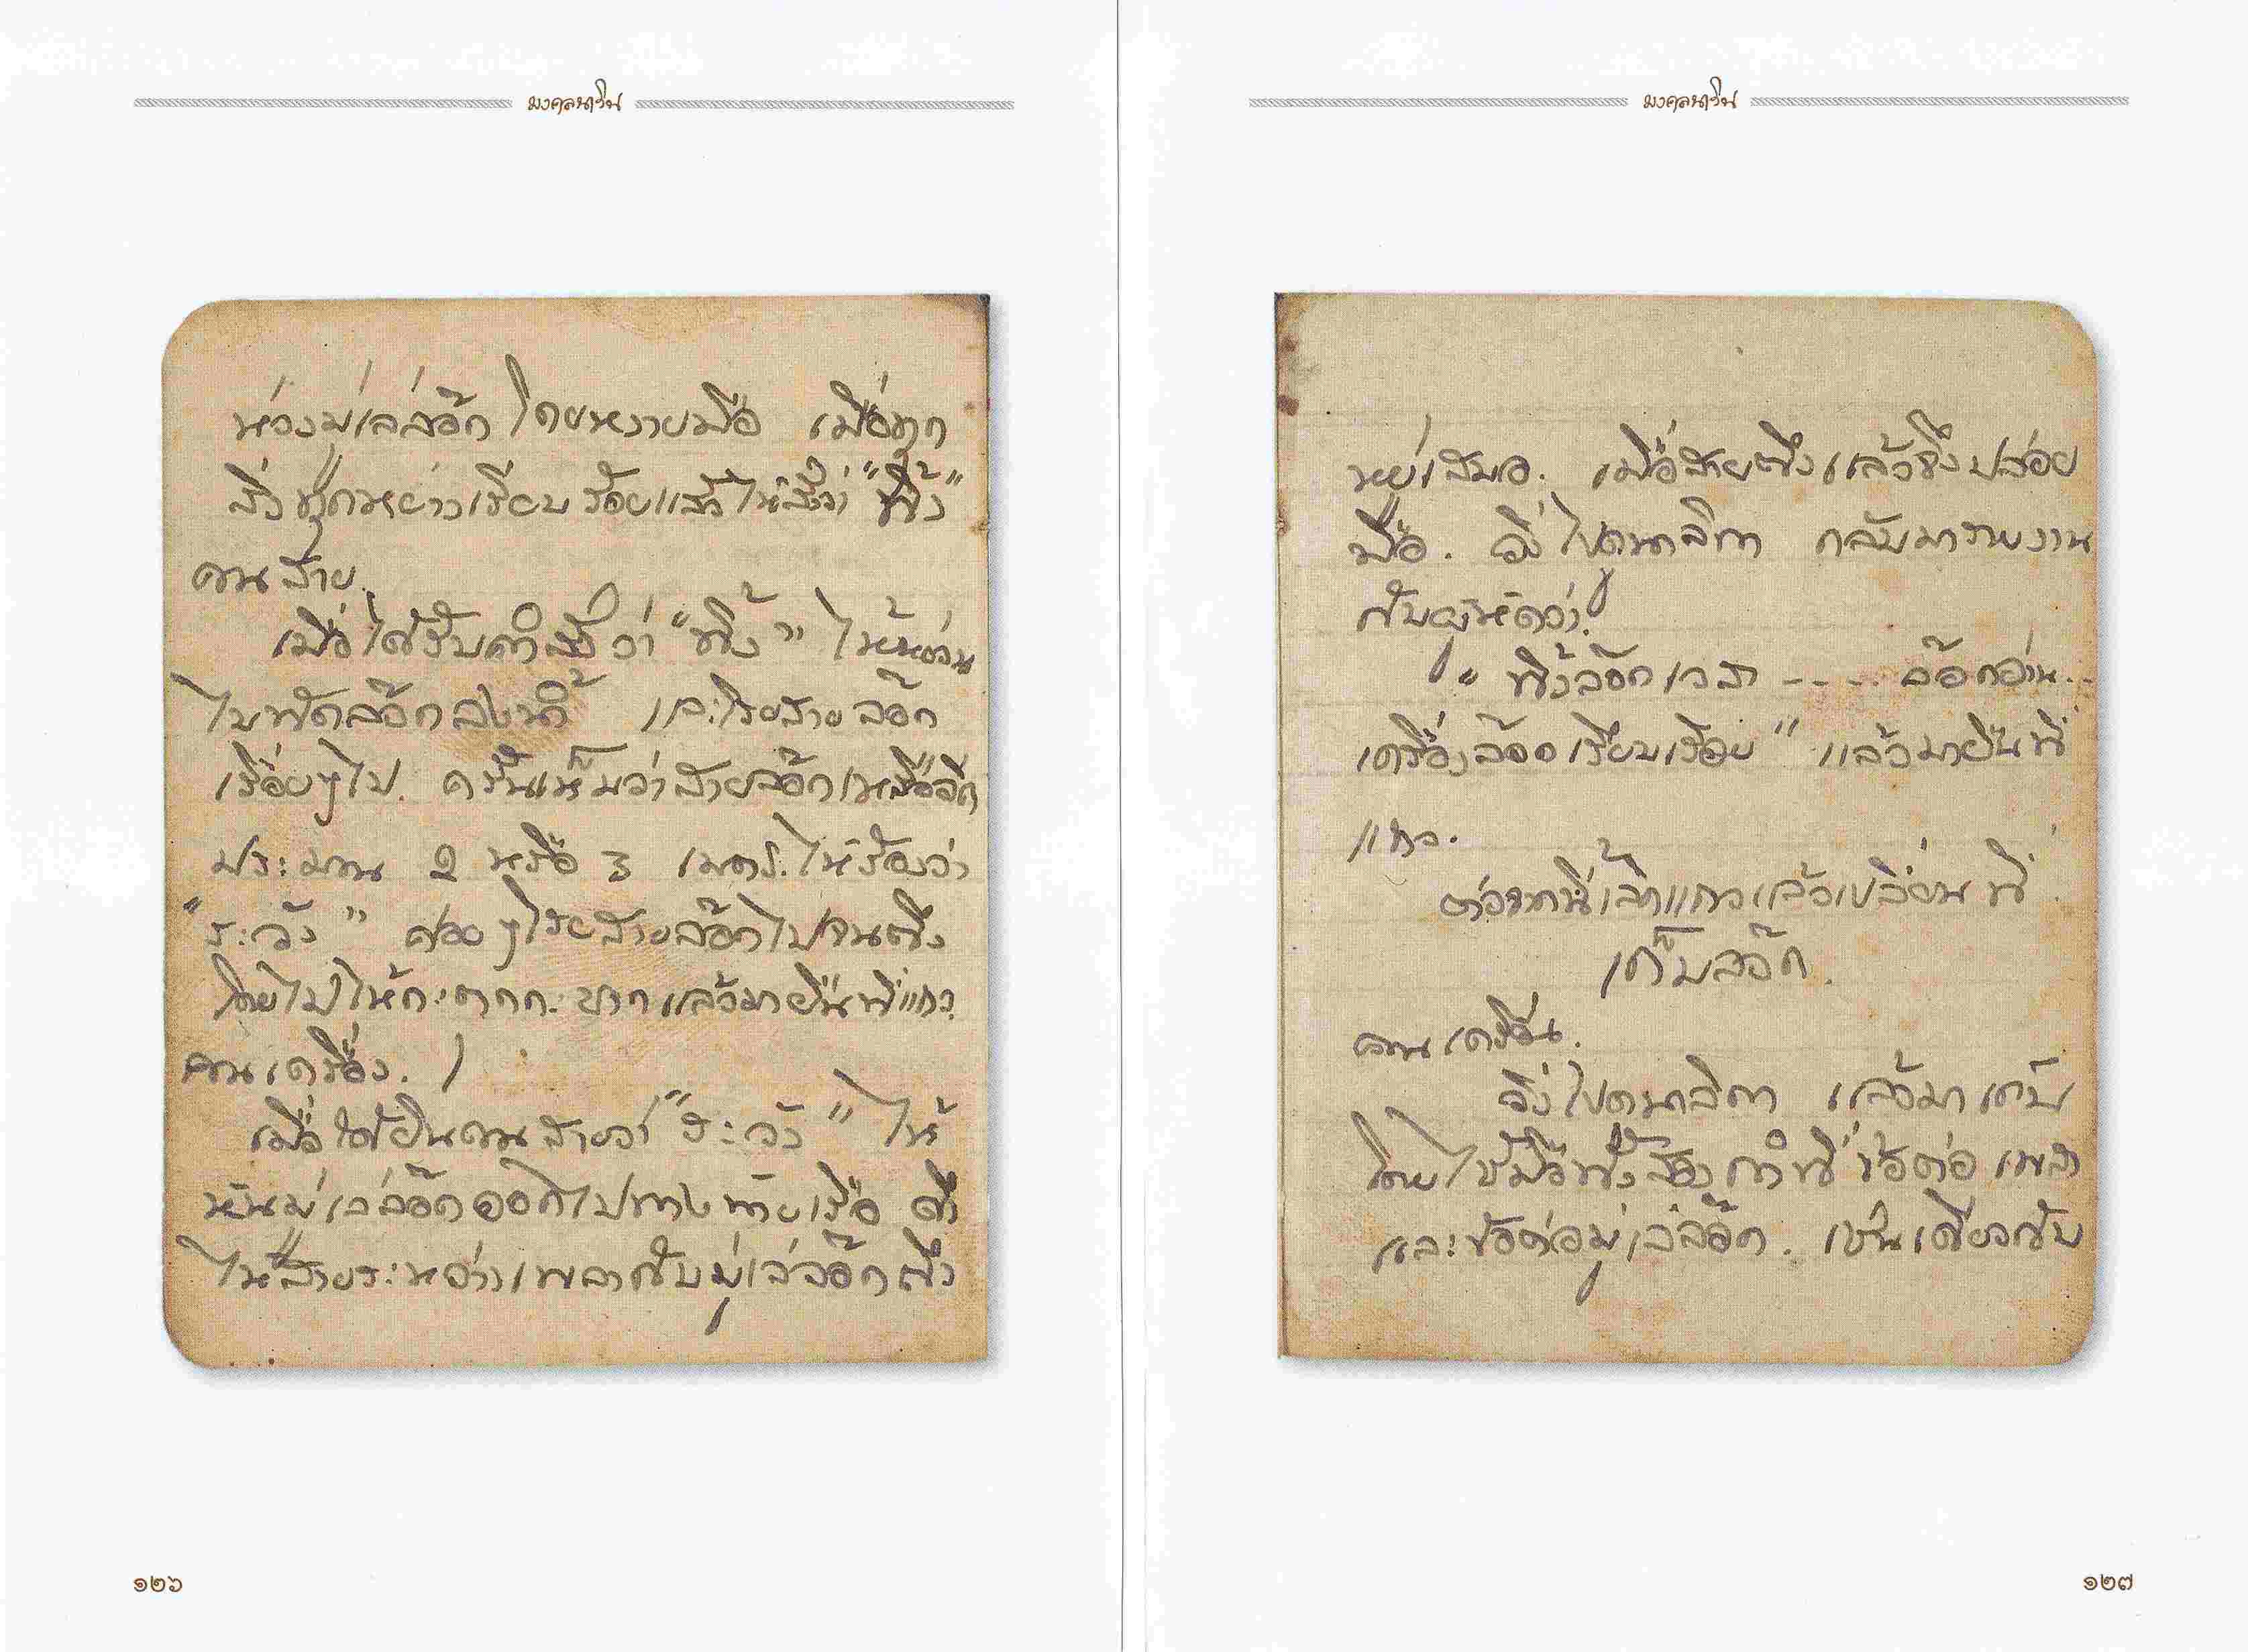 มงคลนาวิน
ห่วงมู่เล่ล๊อก โดยหงายมือ เมื่อทุก
สิ่งทุกหย่างเรียบร้อยแล้วให้สั่งว่า "ทิ้ง"
คนสาย.
เมื่อได้รับคำสั่งว่า "ทิ้ง" ให้หย่อน
ไบพัดล๊อกลงน้ำ และโรยสายล๊อก
เรื่อยๆไป. ครั้นเห็นว่าสายล๊อกเหลืออีก
ประมาน 2 หรือ 3 เมตร์. ให้ร้องว่า
"ระวัง" ค่อยๆโรยสายล๊อกไปจนตึง
โดยไม่ให้กะตุกกะชากแล้วมายืนที่แถว.
คนเครื่อง.
เมื่อได้ยินคนสายว่า "ระวัง" ให้
หันมู่เล่ล๊อกออกไปทางท้ายเรือ
ไห้สายระหว่างเพลากับมู่เล่ล๊อกตึง
๑๒๖
มงคลนาวิน
หยู่เสมอ. เมื่อสายตึงแล้วจึงปล่อย
มือ. วิ่งไปดูนาลิกา กลับมารายงาน
กับผู้หัดว่า.
" ทิ้งล๊อกเวลา ---- ล๊อกอ่าน..
เครื่องล๊อกเรียบร้อย" แล้วมายืนที่
แถว.
ต่อจากนี้เลิกแถวแล้วเปลี่ยนที่.
เก็บล๊อก.
คนเครื่อง.
วิ่งไปดูนาลิกา แล้วมาเก็บ
โดยไช้มือทั้งสองกำที่ข้อต่อเพลา
และข้อต่อมู่เล่ล๊อก. เช่นเดียวกับ
๑๒๗